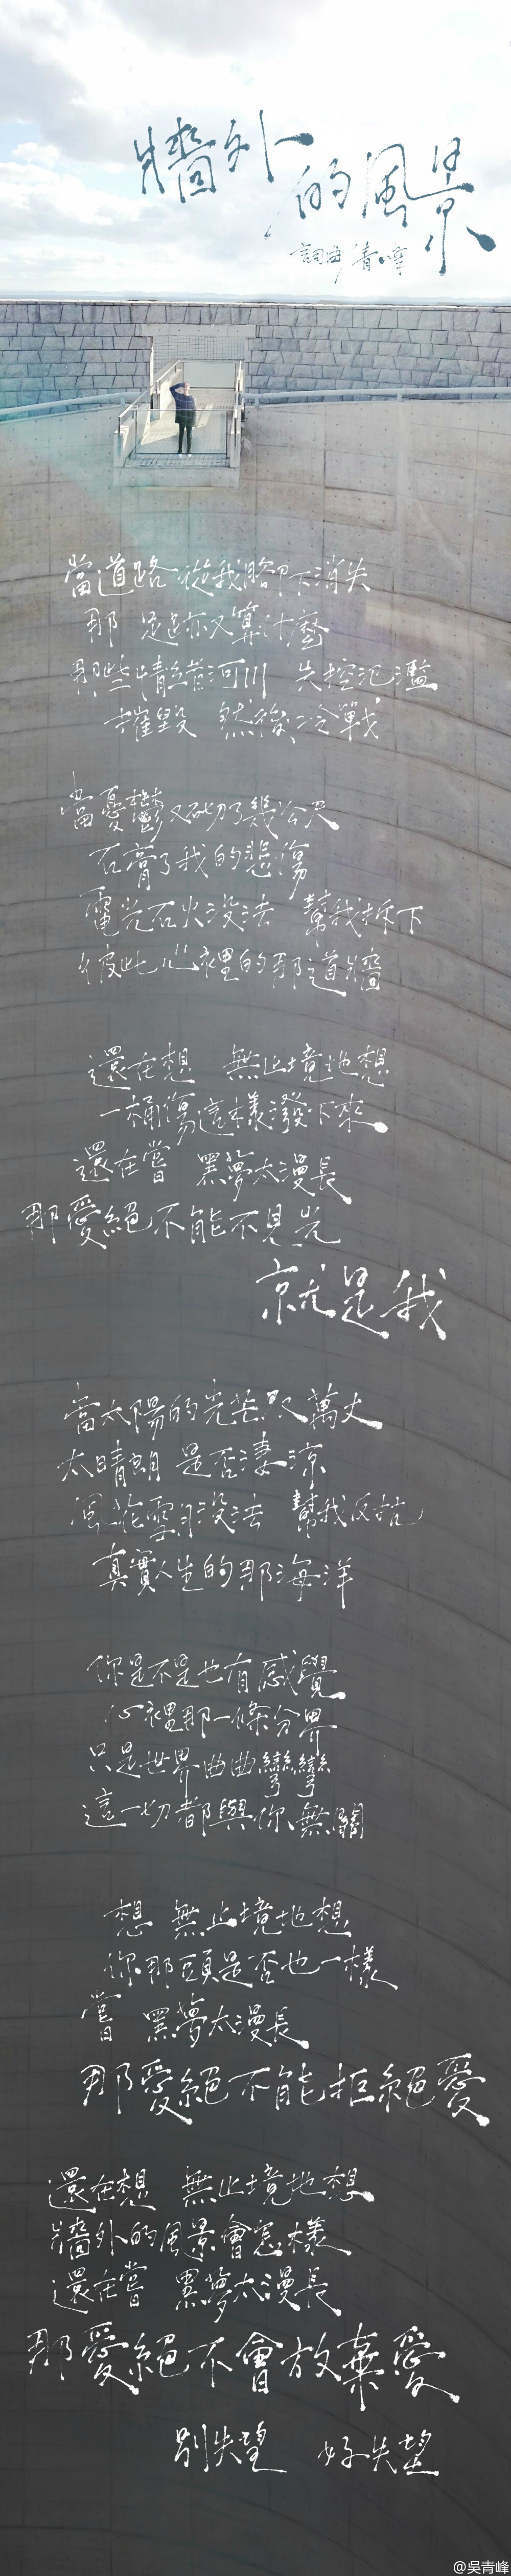 牆外的風景
詞曲 青峰
當道路從我腳下消失
那 足跡又算什麼
那些情緒河川 失控氾濫
摧毀 然後冷戰
當憂鬱又砌了幾公尺
石膏了我的悲傷
電光石火沒法 幫我拆下
彼此心裡的那道牆
還在想 無止境地想
一桶傷這樣潑下來
還在嘗 黑夢太漫長
那愛絕不能不見光
就是我
當太陽的光芒又萬丈
太晴朗 是否淒涼
風花雪月沒法 幫我反抗
真實人生的那海洋
你是不是也有感覺
心裡那一條分界
只是世界曲曲彎彎
這一切都與你無關
想 無止境地想
你那頭是否也一樣
嘗 黑夢太漫長
那愛絕不能拒絕愛
還在想 無止境地想
牆外的風景會怎樣
還在嘗 黑夢太漫長
那愛絕不會放棄愛
別失望 好失望
@吳青峰